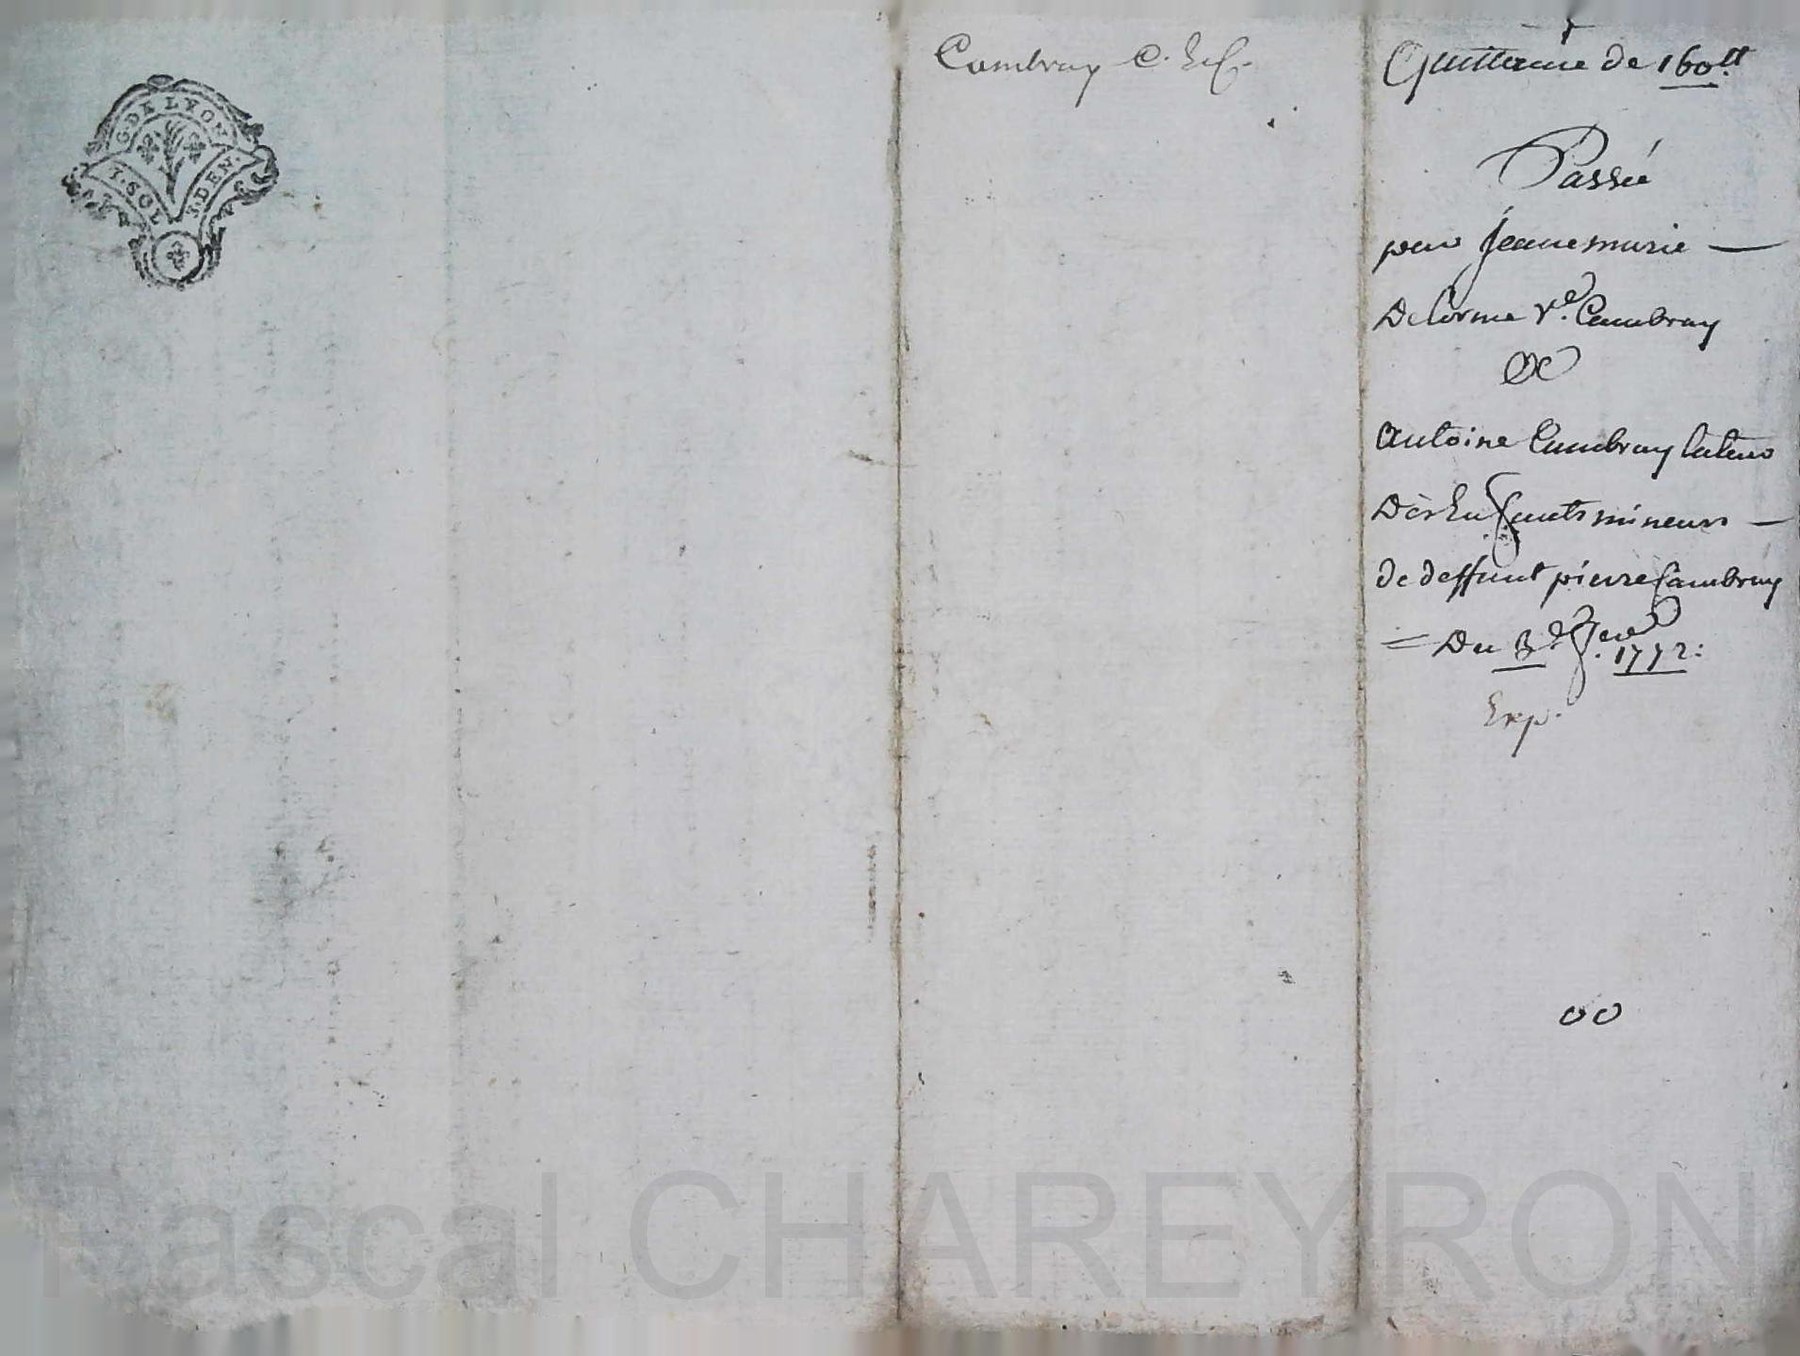 G. DE LYON
1. SOL
5. DEN.
Cambray C.
Quittance de 160ᵗᵗ
Passée
par Jeanemarie —
Delorme Vᵉ. Cambray
&
Antoine Cambray tuteur
Des Enfants mineurs —
de deffunt pierre Cambray
= Du 3ᵉ Jerᵉʳ 1772:
Exp.
00
Pascal CHAREYRON